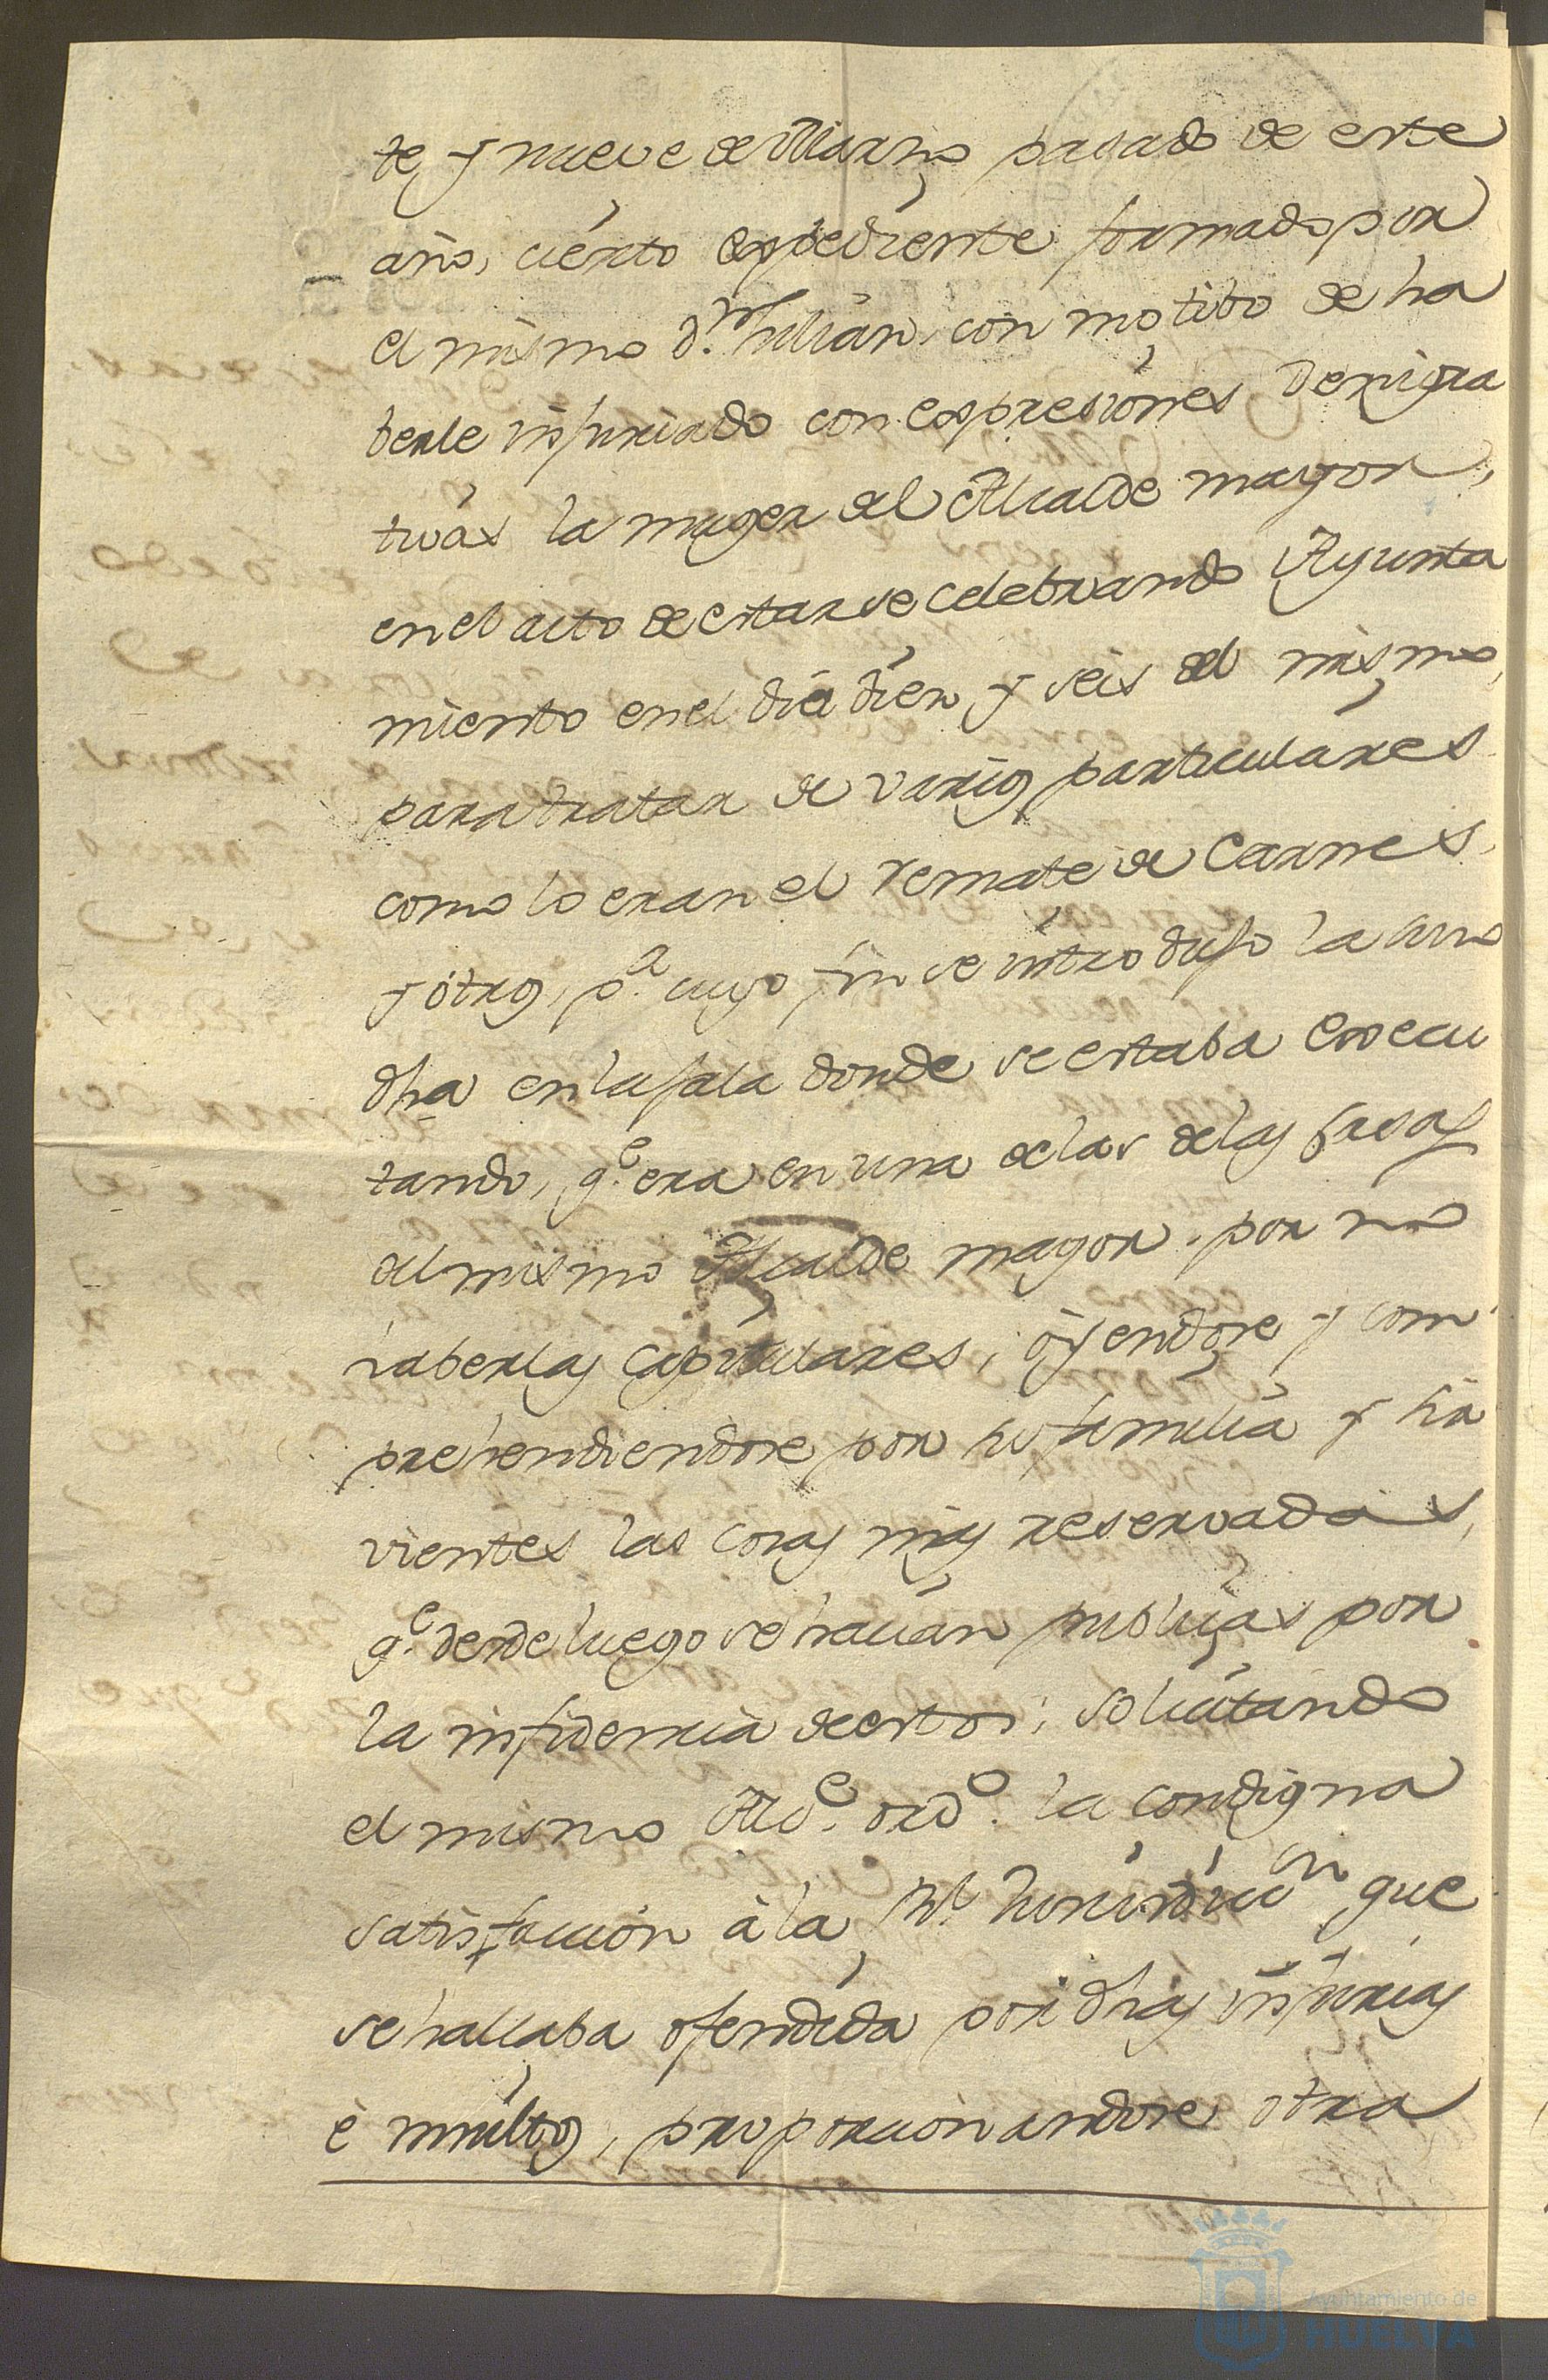 te y nueve de Marzo pasado de este
año, cierto expediente formado por
el mismo d.n Julian, con motibo de ha
berle injuriado con expresiones denigra
tivas la muger del Alcalde mayor,
en el acto de estarse celebrando Ayunta
miento en el dia diez y seis del mismo,
para tratar de varios particulares
como lo eran el remate de Carnes,
y otros, p.a cuyo fin se introdujo la suso
dha en la sala donde se estaba execu
tando, q.e era en una de las de las Casas
del mismo Alcalde mayor por no
haberlas capitulares, oyendose y com
prehendiendose por su familia y sir
vientes las cosas mas reservadas,
q.e desde luego se hacian publicas por
la infidencia de estos; solicitando
el mismo Alc.e ord.o la condigna
satisfaccion à la R.l Jurisdicc.on que
se hallaba ofendida por dhas injurias
é insultos, proporcionandose otra
Ayuntamiento de
HUELVA